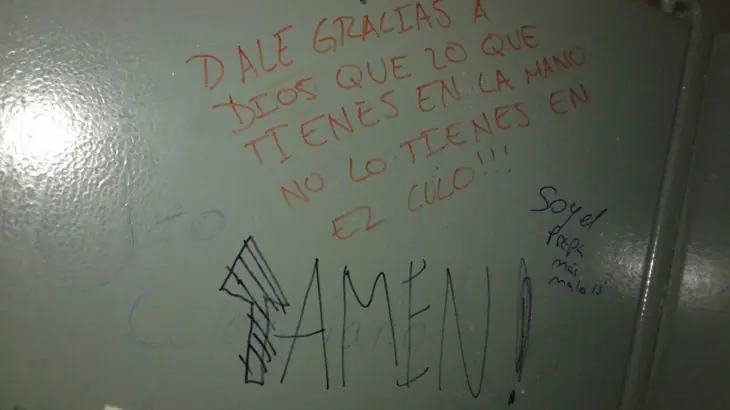 DALE GRACIAS A
DIOS QUE LO QUE
TIENES EN LA MANO
NO LO TIENES EN
EL CULO!!!
¡AMEN!
Soy el
Papa
más
malo